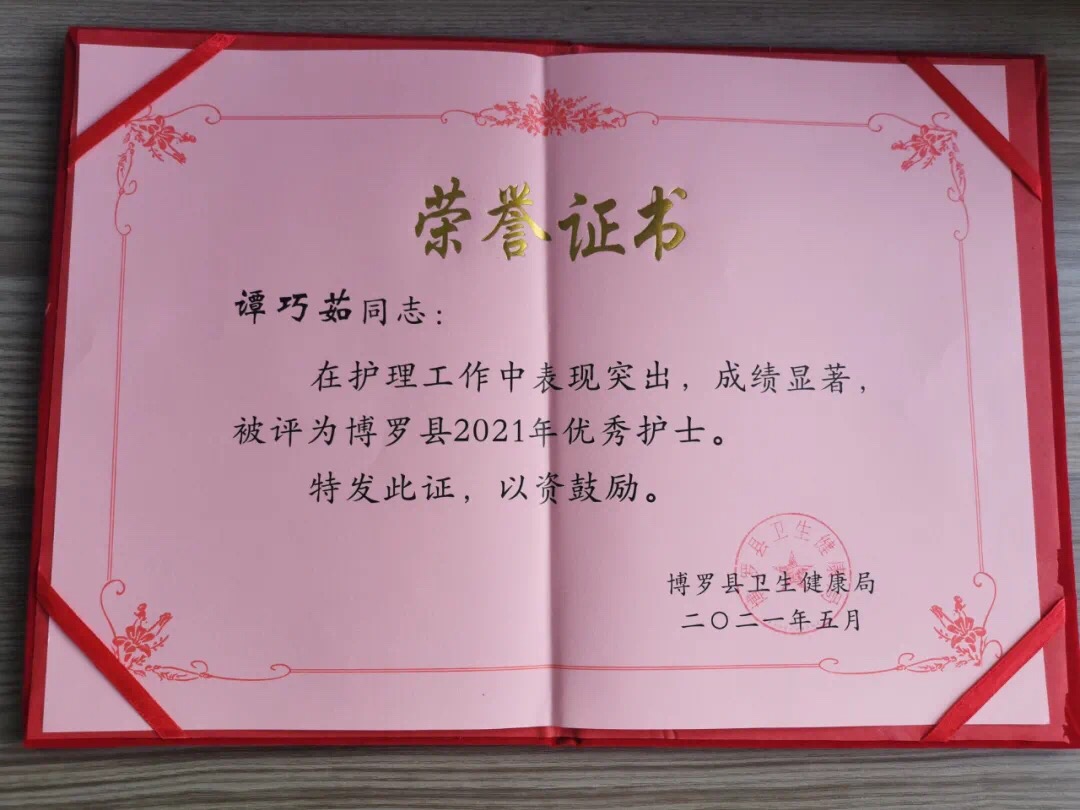 荣誉证书
谭巧茹同志：
在护理工作中表现突出，成绩显著，
被评为博罗县2021年优秀护士。
特发此证，以资鼓励。
博罗县卫生健康局
博罗县卫生健康局
二〇二一年五月